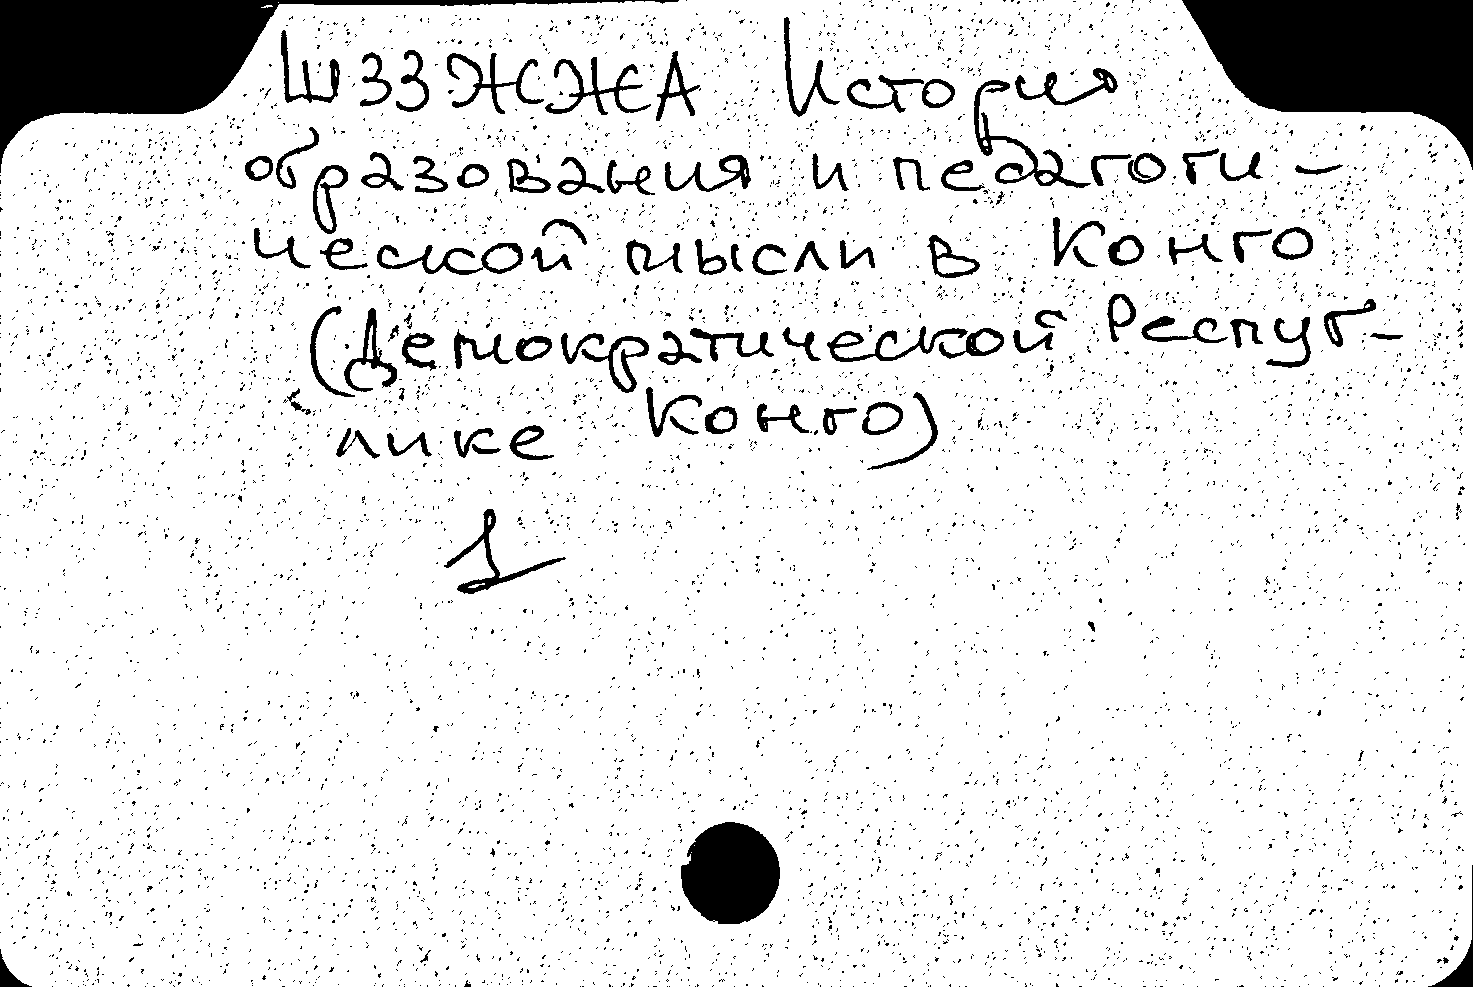 Ш33ЖЖА История
образования и педагоги-
ческой мысли в Конго
(Демократической Респуб-
лике Конго)
1